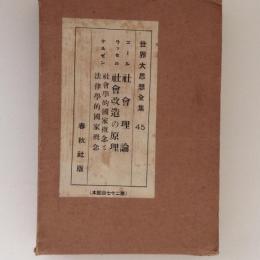 世界大思想全集 45
コール 社會理論
ラッセル 社會改造の原理
ケルゼン 社會學的國家概念と
法律學的國家概念
春秋社版